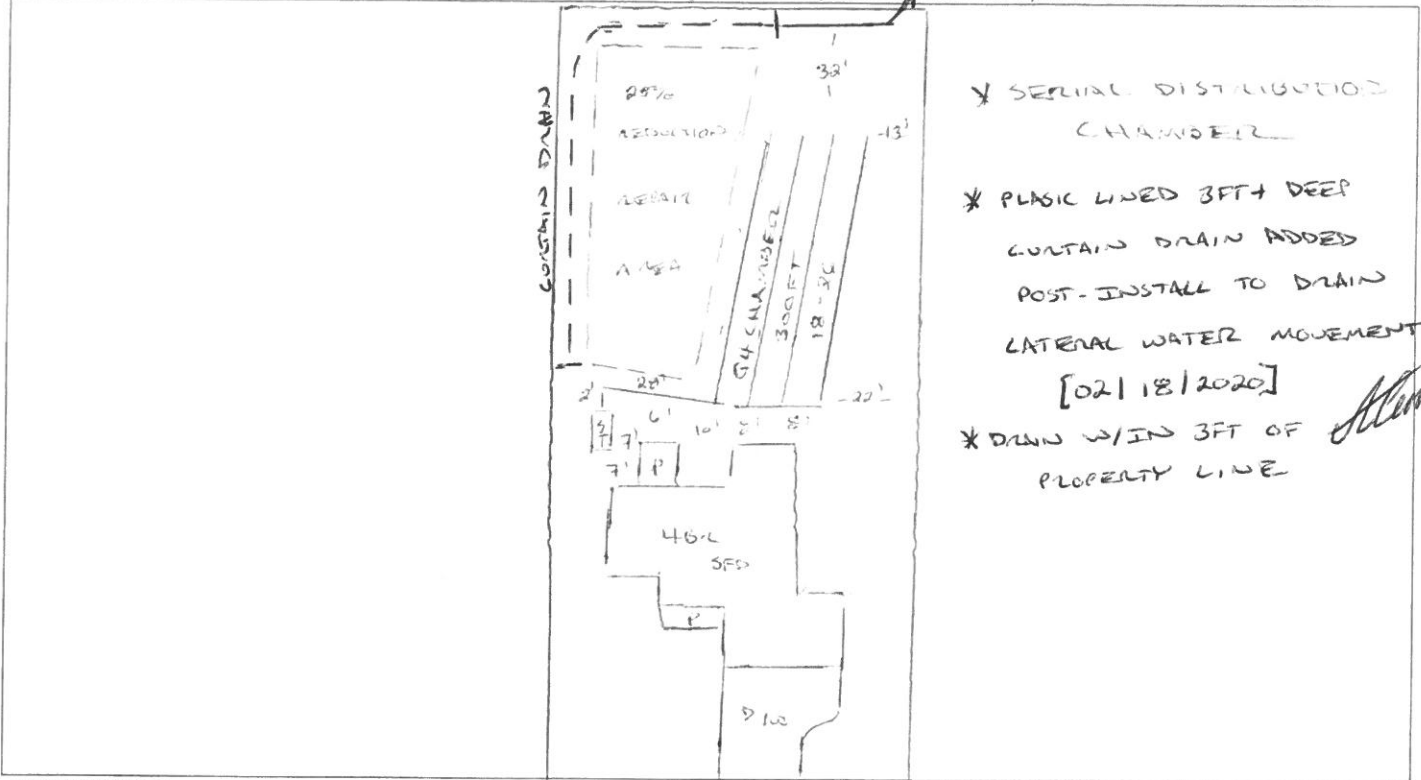 CURTAIN DRAIN
25%
REDUCTION
REPAIR
AREA
32'
13'
G4 CHAMBER
300FT
18-36
22'
2'
28'
6'
10'
8'
8'
ST
7'
7'
P
4BR
SFD
P
D/W
* SERIAL DISTRIBUTION
CHAMBER
* PLASIC LINED 3FT+ DEEP
CURTAIN DRAIN ADDED
POST-INSTALL TO DRAIN
LATERAL WATER MOVEMENT
[02/18/2020]
* DRAIN W/IN 3FT OF
PROPERTY LINE